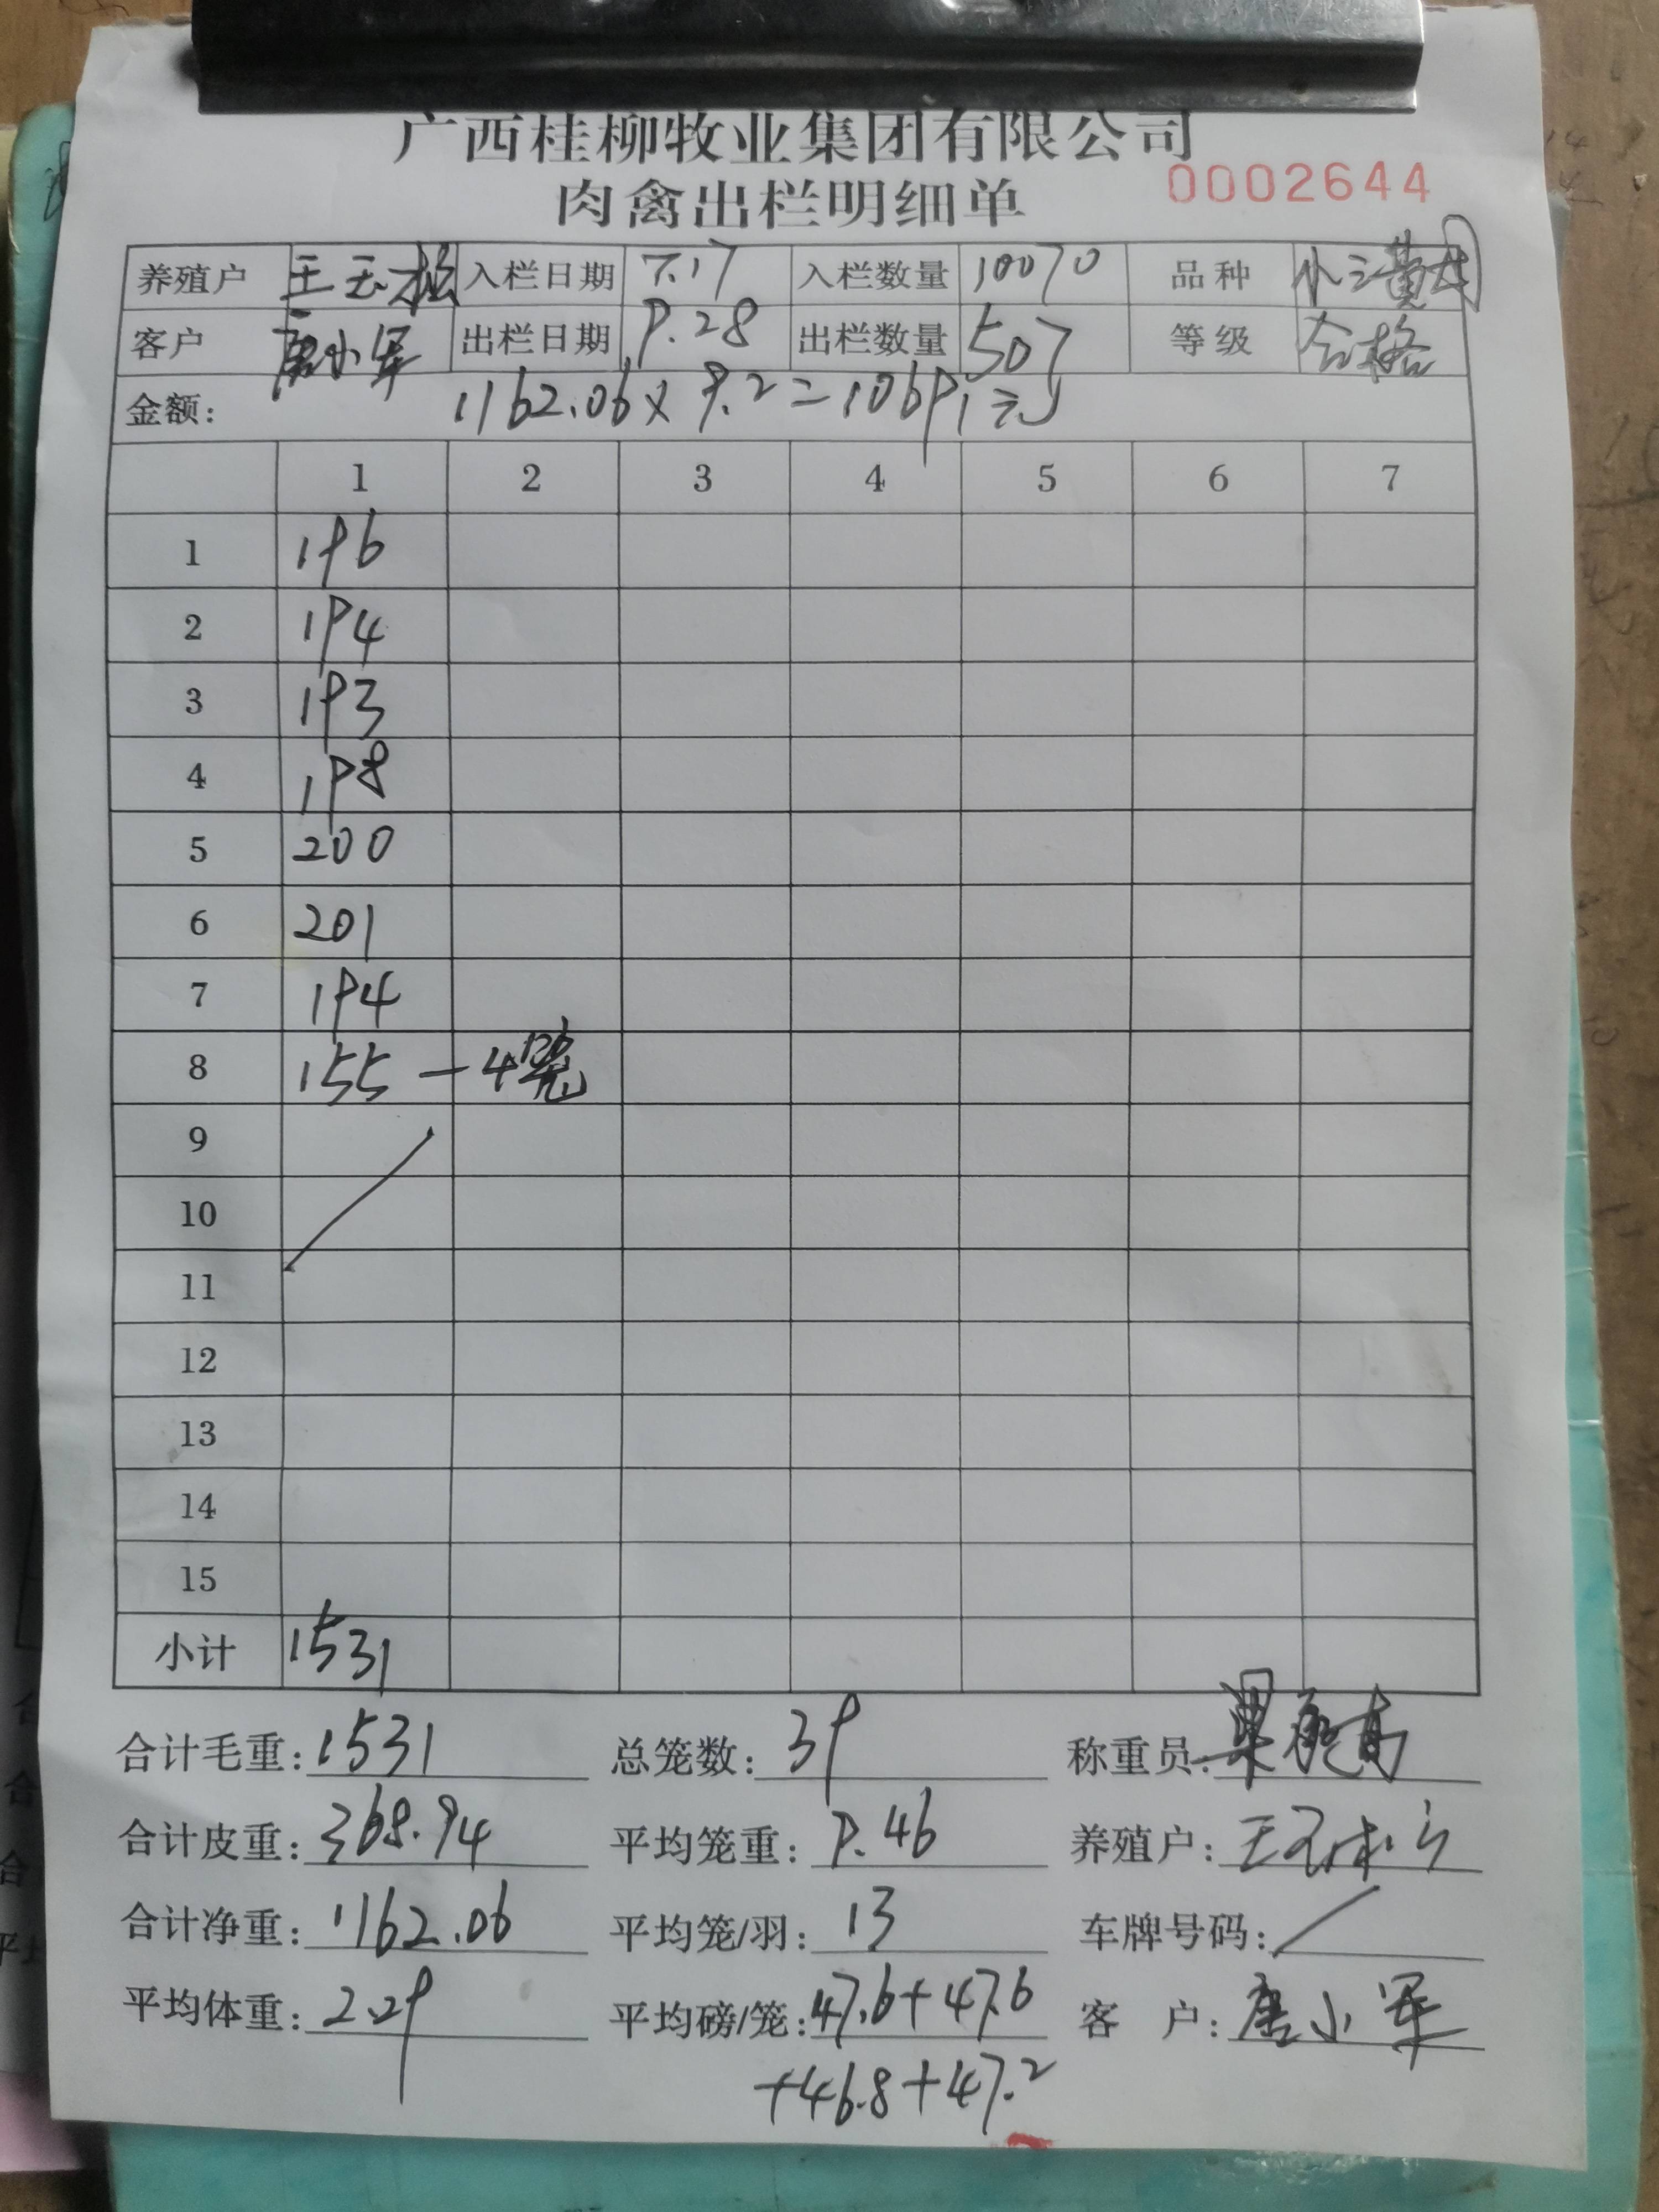 广西桂柳牧业集团有限公司
肉禽出栏明细单 0002644
养殖户 王玉松 入栏日期 7.17 入栏数量 10070 品种 小三黄母
客户 唐小军 出栏日期 9.28 出栏数量 507 等级 合格
金额: 1162.06×9.2=10691元
1 2 3 4 5 6 7
1 196
2 194
3 193
4 198
5 200
6 201
7 194
8 155 — 4笼
9
10
11
12
13
14
15
小计 1531
合计毛重: 1531 总笼数: 39 称重员:
合计皮重: 368.94 平均笼重: 9.46 养殖户: 王玉松
合计净重: 1162.06 平均笼/羽: 13 车牌号码: /
平均体重: 2.29 平均磅/笼: 47.6+47.6 客 户: 唐小军
+46.8+47.2